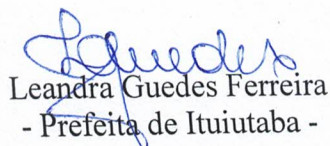 LGuedes
Leandra Guedes Ferreira
- Prefeita de Ituiutaba -